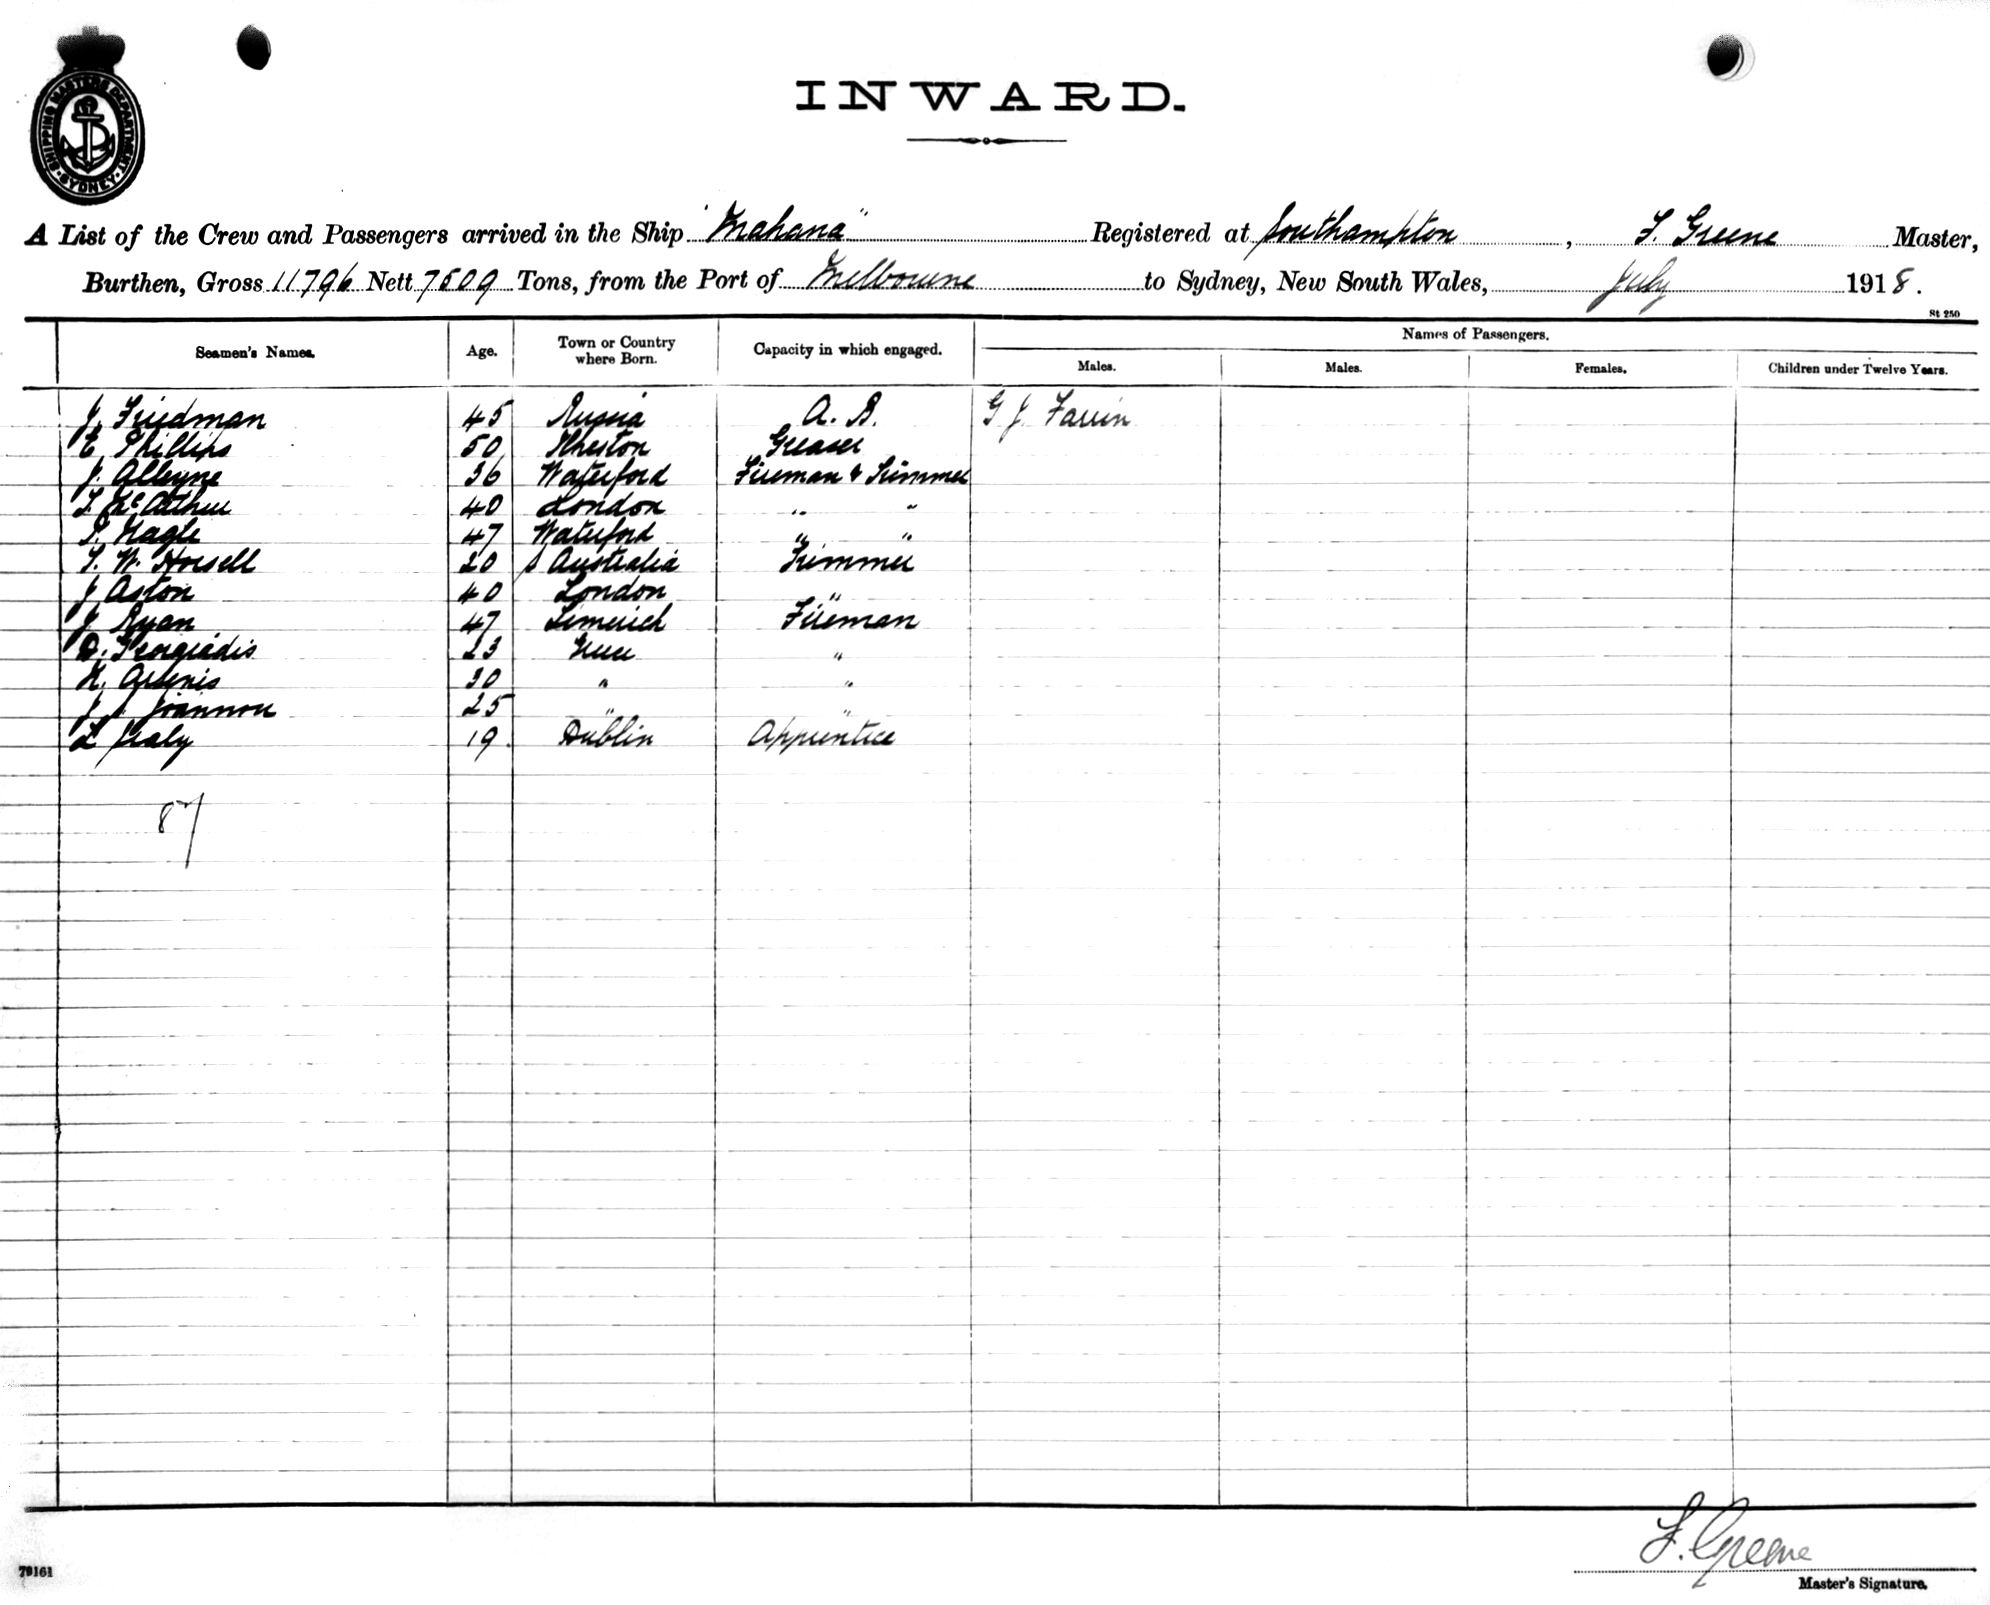 SHIPPING MASTERS DEPARTMENT
SYDNEY
INWARD.
A List of the Crew and Passengers arrived in the Ship "Mahana" Registered at Southampton, F. Greene Master,
Burthen, Gross 11796 Nett 7509 Tons, from the Port of Melbourne to Sydney, New South Wales, July 1918.
St 250
Seamen's Names. Age. Town or Country where Born. Capacity in which engaged. Names of Passengers.
Males. Males. Females. Children under Twelve Years.
J. Friedman 45 Russia A. B. G J. Farrin
E. Phillips 50 Greaser
J. Alleyne 36 Waterford Fireman & Trimmer
T. McArthur 40 London " "
P. Nagle 47 Waterford " "
T. W. Horsell 20 S Australia Trimmer
J Aston 40 London "
J Ryan 47 Limerick Fireman
D. Georgiadis 23 Greece "
N. Arsenis 30 " "
J. Joannou 25 " "
L Healy 19 Dublin Apprentice
87
F. Greene
79161
Master's Signature.